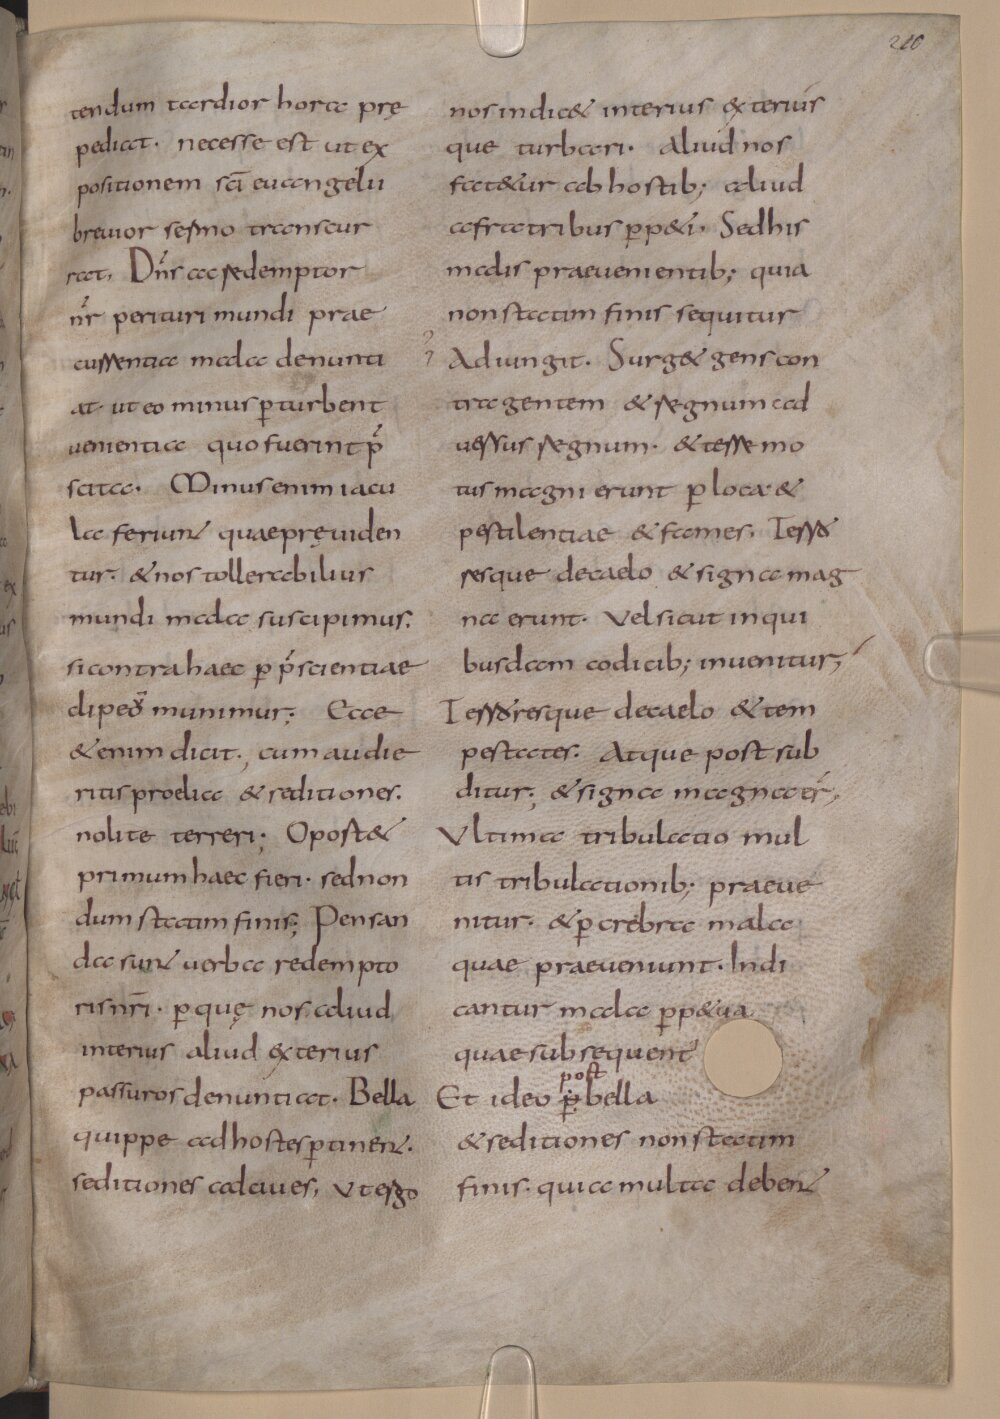 210
tendum tardior hora prę
pedicat. necesse est ut ex
positionem scī euangelii
breuior sermo transcur
rat, Dn̄s ac redemptor
nr̄ perituri mundi prae
currentia mala denunti
at. ut eo minus ꝑturbent
uenientia quo fuerint p̄
scita. Minus enim iacu
la feriunt quae pręuiden
tur. & nos tollerabilius
mundi mala suscipimus.
si contra haec ꝑ p̄scientiae
clipeū munimur; Ecce
&enim dicit., cum audie
ritis proelia & seditiones.
nolite terreri; Oport&
primum haec fieri. sed non
dum statim finis; Pensan
da sunt uerba redempto
ris nrī. ꝑ quę nos aliud
interius aliud exterius
passuros denuntiat. Bella
quippe ad hostes ꝑtinent.
seditiones ad ciues, Ut ergo
nos indic& interius exterius
que turbari. Aliud nos
fat&ur ab hostib; aliud
a fratribus ꝑp&i. Sed his
malis praeuenientib; quia
non statim finis sequitur
Adiungit. Surg& gens con
tra gentem & regnum ad
uersus regnum. & terre mo
tus magni erunt ꝑ loca &
pestilentiae & fames, Terro
resque de caelo & signa mag
na erunt. Vel sicut in qui
busdam codicib; inuenitur;
Terroresque de caelo & tem
pestates. Atque post sub
ditur; & signa magna er̄,
Vltima tribulatio mul
tis tribulationib; praeue
nitur. & ꝑ crebra mala
quae praeueniunt. Indi
cantur mala ꝑp&ua
quae subsequent
post
Et ideo ꝑ bella
& seditiones non statim
finis. quia multa debent